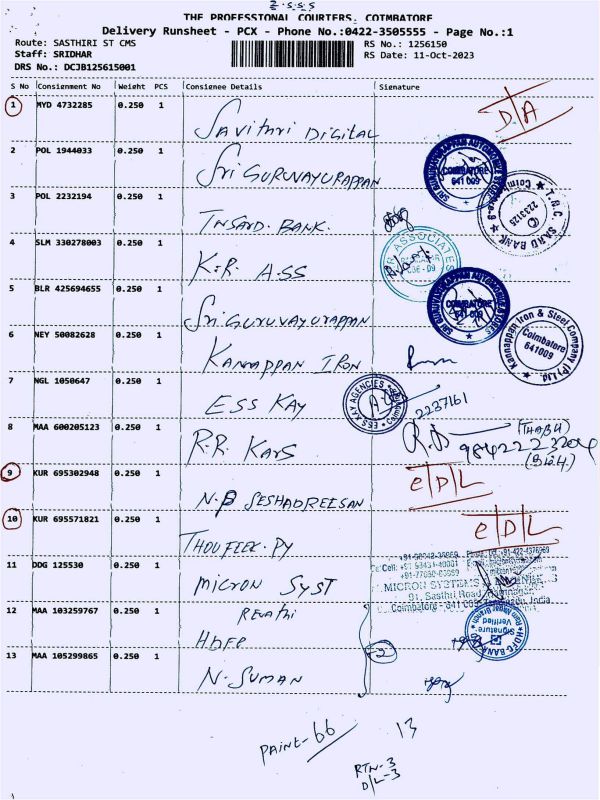 2.S.S.S
THE PROFESSTONAL COURTERS. COTMBATORE
Delivery Runsheet - PCX - Phone No.:0422-3505555 - Page No.:1
Route: SASTHIRI ST CMS
RS No.: 1256150
Staff: SRIDHAR
RS Date: 11-Oct-2023
DRS No.: DCJB125615001
S No Consignment No Weight PCS Consignee Details Signature
1 MYD 4732285 0.250 1 Savithri DIGITAL D/A
2 POL 1944033 0.250 1 Sri GURUVAYURAPPAN
SRI GURUVAYURAPPAN AUTOMOTIVE STORES COIMBATORE 641 009
3 POL 2232194 0.250 1 TNSARD. BANK.
T.N.C. SARD BANK Coimbatore-9 2233125
4 SLM 330278003 0.250 1 K.R. ASS
5 BLR 425694655 0.250 1 Sri GURUVAYURAPPAN
SRI GURUVAYURAPPAN AUTOMOTIVE STORES COIMBATORE 641 009
6 NEY 50082628 0.250 1 KANNAPPAN IRON
Kannappan Iron & Steel Company (P) Ltd. Coimbatore 641009
7 NGL 1050647 0.250 1 ESS KAY
ESS KAY AGENCIES 2237161
8 MAA 600205123 0.250 1 R.R. KARS
9 KUR 695302948 0.250 1 N.B SESHADREESAN e/D/L
10 KUR 695571821 0.250 1 THOUFLEX.PY e/D/L
11 DDG 125530 0.250 1 MICRON SYST
MICRON SYSTEMS
91, Sasthri Road, Ramnagar,
Coimbatore - 641 009, India
12 MAA 103259767 0.250 1 Revathi
HDFC
HDFC BANK Ram Nagar Branch Signature Verified
13 MAA 105299865 0.250 1 N. SUMAN
PAINT-66 13
RTN-3
D/L-3